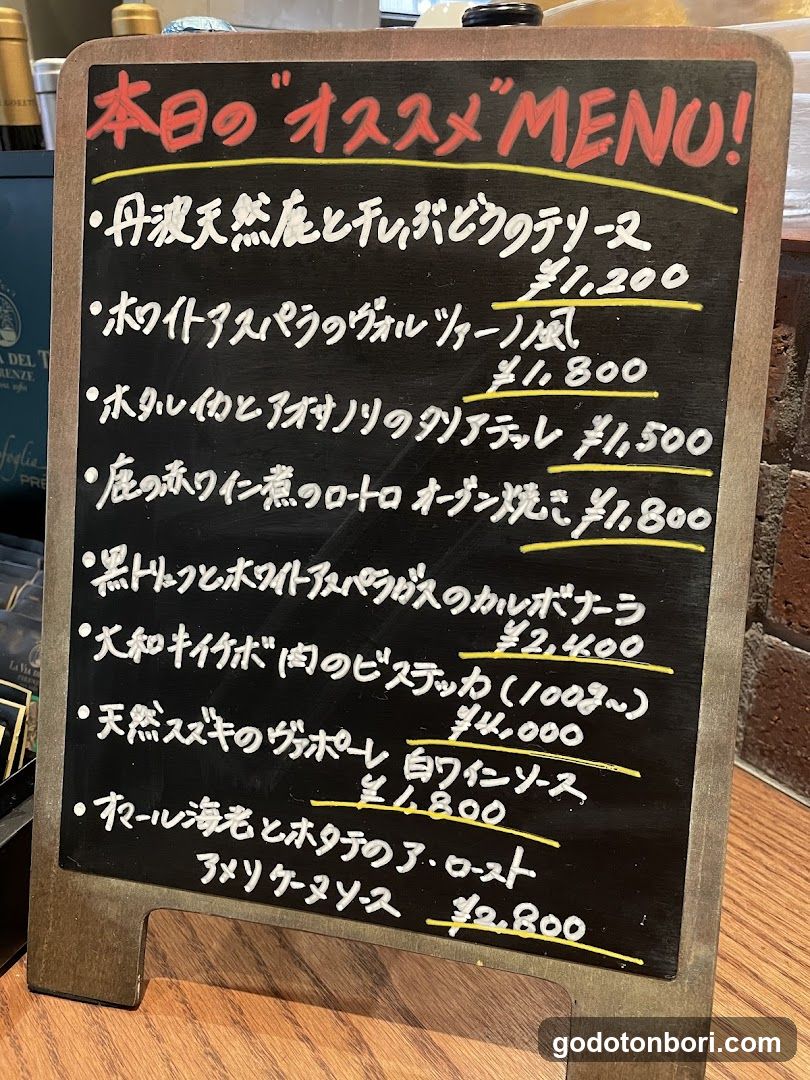 本日の"オススメ"MENU!
・丹波天然鹿と干しぶどうのテリーヌ
¥1,200
・ホワイトアスパラのヴォルツァーノ風
¥1,800
・ホタルイカとアオサノリのタリアテッレ ¥1,500
・鹿の赤ワイン煮のロートロ オーブン焼き ¥1,800
・黒トリュフとホワイトアスパラガスのカルボナーラ
¥2,400
・大和牛イチボ肉のビステッカ(100g~)
¥4,000
・天然スズキのヴァポーレ 白ワインソース
¥1,800
・オマール海老とホタテのア・ロースト
アメリケーヌソース ¥2,800
VIA DEL T
FIRENZE
godotonbori.com